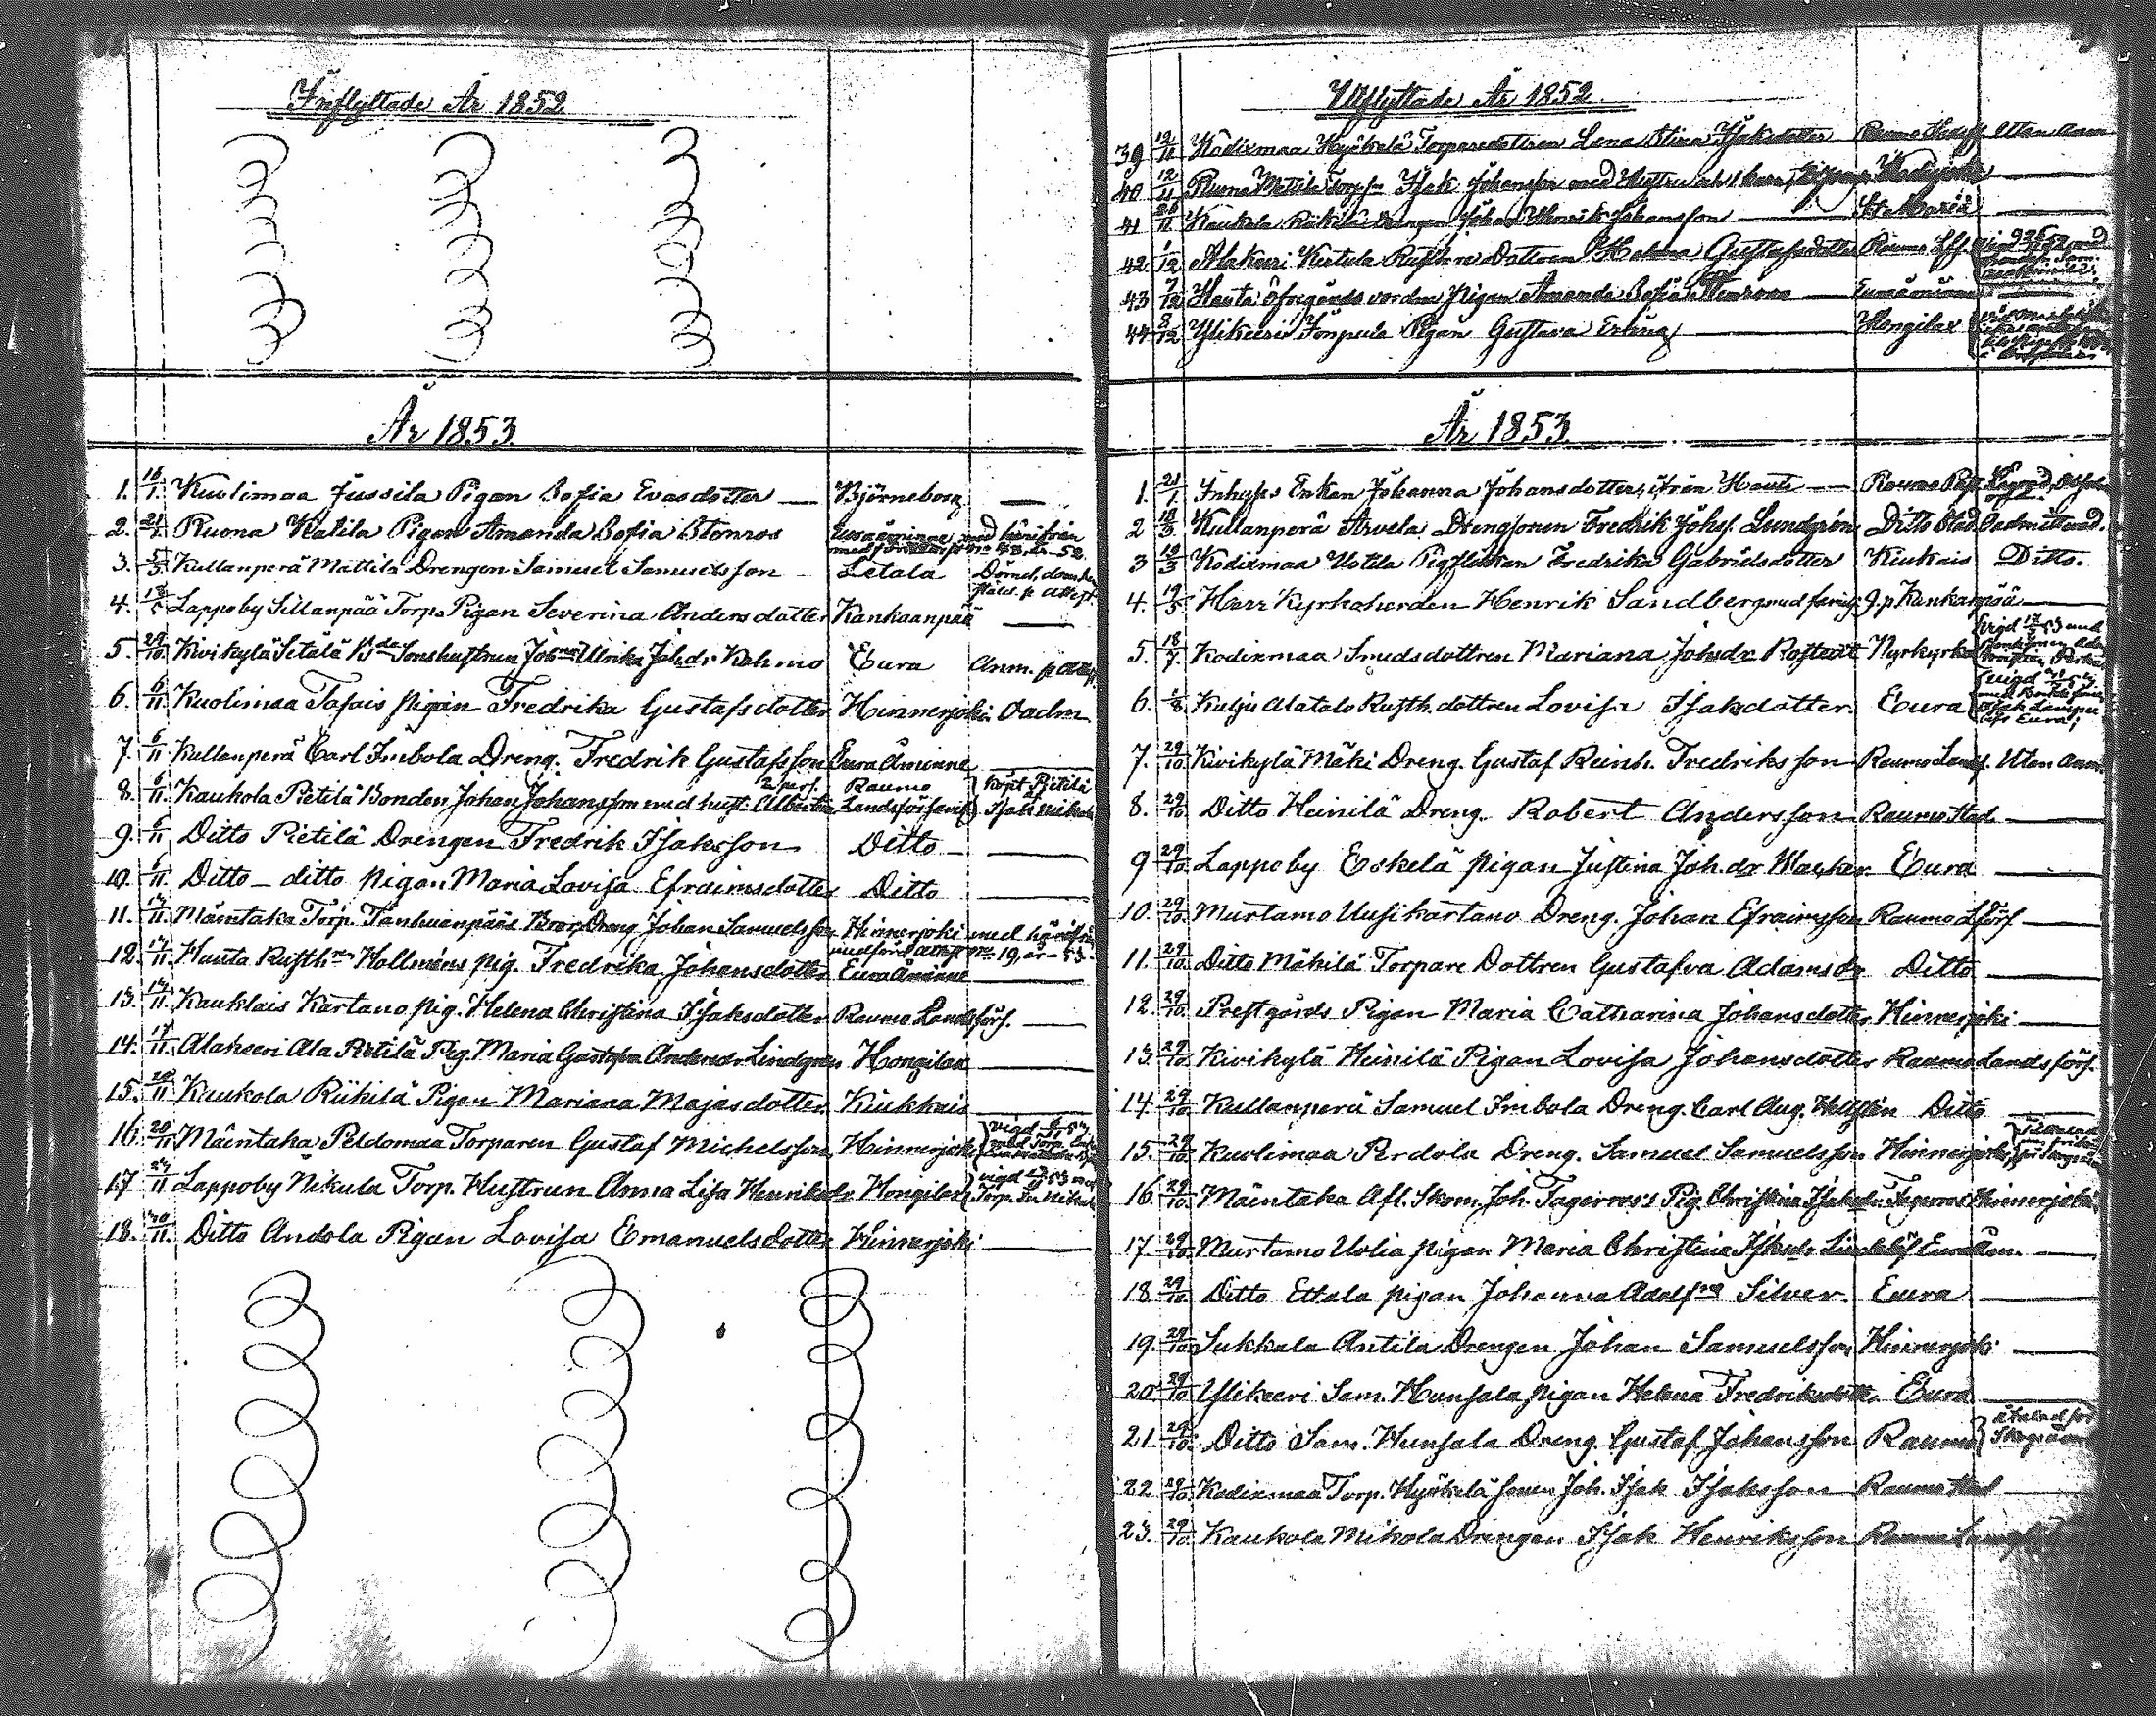 Inflyttade År 1852
År 1853
1. 16/1. Kuolimaa Jussila Pigan Sofia Evasdotter — Björneborg —
2. 21/2. Ruona Katila Pigan Amanda Sofia Stenros Euraåminne med härifrån
medförd attest No 43, år - 52.
3. 5/3. Kullanperä Mattila Drengen Samuel Samuelsson — Letala
4. 18/5 Lappoby Sillanpää Torp. Pigan Severina Andersdotter Kankaanpää —
5. 29/10 Kivikylä Setälä Sonshustrun Johna Ulrika Joh.dr Kahmo Eura Anm. p. attest.
6. 6/11 Kuolimaa Tafais pigan Fredrika Gustafsdotter Hinnerjoki Oadm.
7. 6/11 Kullanperä Carl Imbola Dreng. Fredrik Gustafsson Eura Åminne —
2 pers. Raumo Köpt Pietilä
8. 6/11. Kaukola Pietilä Bonden Johan Johansson med hust. Albertin Landsförsaml. Isak Mikola
9. 6/11. Ditto Pietilä Drengen Fredrik Isaksson Ditto —
10. 6/11. Ditto — ditto pigan Maria Lovisa Efraimsdotter Ditto —
11. 14/11. Mäentaka Torp. Tanhuanpääs Bror, Dreng Johan Samuelsson Hinnerjoki med härifrån
medförd attest No. 19, år - 53.
12. 14/11. Hauta Rusth. Hollméns pig. Fredrika Johansdotter Euraåminne —
13. 14/11. Kauklais Kartano pig. Helena Christina Isaksdotter Raumo Landsförs. —
14. 17/11. Alakeeri Ala Pietilä Pig. Maria Gustafva Andersdr Lindgren Hongilax —
15. 20/11. Kaukola Riikilä Pigan Mariana Majasdotter Kiukkais —
16. 20/11 Mäentaka Peldomaa Torparen Gustaf Michelsson Hinnerjoki
17 27/11 Lappoby Nikula Torp. Hustrun Anna Lisa Henriksdr Hongilax
18. 30/11. Ditto Andola Pigan Lovisa Emanuelsdotter Hinnerjoki —
Utflyttade År 1852
39 12/11 Kodixmaa Hyökelä Torparedottren Lena Stina Isaksdotter Raumo Utan anm
40 12/11 Ruona Mattila Torp.sn Isak Johansson med Hustru och 1 barn
41 26/11 Kaukola Riikilä Drengen Johan Henrik Johansson — St Maria —
42 1/12 Alakeeri Kertula Rusth.re Dottren Helena Gustafsdotter Raumo Lfs.
43 7/12 Hauta Öfregårds vordne pigan Amanda Sofia Stenroos — Euraåminne —
44 8/12 Ylikeeri Jonpula Pigan Gustava Erling — Hongilax
År 1853
1. 21/1. Inhyses Enkan Johanna Johansdotter, ifrån Hauta —
2 13/3. Kullanperä Arvela Drengsonen Fredrik Johs. Lundgrén Ditto Stad Oadmitterad.
3 19/3 Kodixmaa Uotila Pigflickan Fredrika Gabrielsdotter Kiukais Ditto.
4. 19/5 Herr Kyrkoherden Henrik Sandberg med familj 9. p Kankanpää —
5. 18/7. Kodixmaa Smedsdottren Mariana Johsdr Rostedt Nyrkyrko
6. 1/8. Kulju Alatalo Rusth. dottren Lovisa Isaksdotter. Eura
7. 29/10 Kivikylä Mäki Dreng. Gustaf Reinh. Fredriksson Raumo Landsf. Utan anm.
8. 29/10. Ditto Heinilä Dreng. Robert Andersson Raumo Stad —
9 29/10 Lappoby Eskelä pigan Justina Joh.dr Wacker Eura —
10. 29/10. Murtamo Uusikartano Dreng. Johan Efraimsson Raumo Lförs. —
11. 29/10. Ditto Mäkilä Torpare Dottren Gustafva Adamsdr Ditto —
12. 29/10. Prestgårds Pigan Maria Catharina Johansdotter Hinnerjoki —
13. 29/10. Kivikylä Heinilä Pigan Lovisa Johansdotter Raumo Landsförs.
14. 29/10. Kullanperä Samuel Imbola Dreng. Carl Aug. Hellstén Ditto —
15. 29/10. Kuolimaa Perdola Dreng. Samuel Samuelsson Hinnerjoki
16. 29/10. Mäentaka Afl. Skom. Joh. Tagerroos's Pig. Christina Isaksdr Tagerroos Hinnerjoki
17 29/10. Murtamo Uolia pigan Maria Christina Isaksdr Lindelöf Euraåm. —
18 29/10. Ditto Ettala pigan Johanna Adolfsd Silver. Eura —
19. 29/10. Sukkala Antila Drengen Johan Samuelsson Hinnerjoki —
20 29/10 Ylikeeri Sam. Hunsala pigan Helena Fredriksdottr. Eura —
21. 29/10. Ditto Sam. Hunsala Dreng Gustaf Johansson Raumo
22 29/10. Kodixmaa Torp. Hyökelä sonen Joh. Isak Isaksson Raumo Stad —
23. 29/10. Kaukola Mikola Drengen Isak Henriksson Raumo